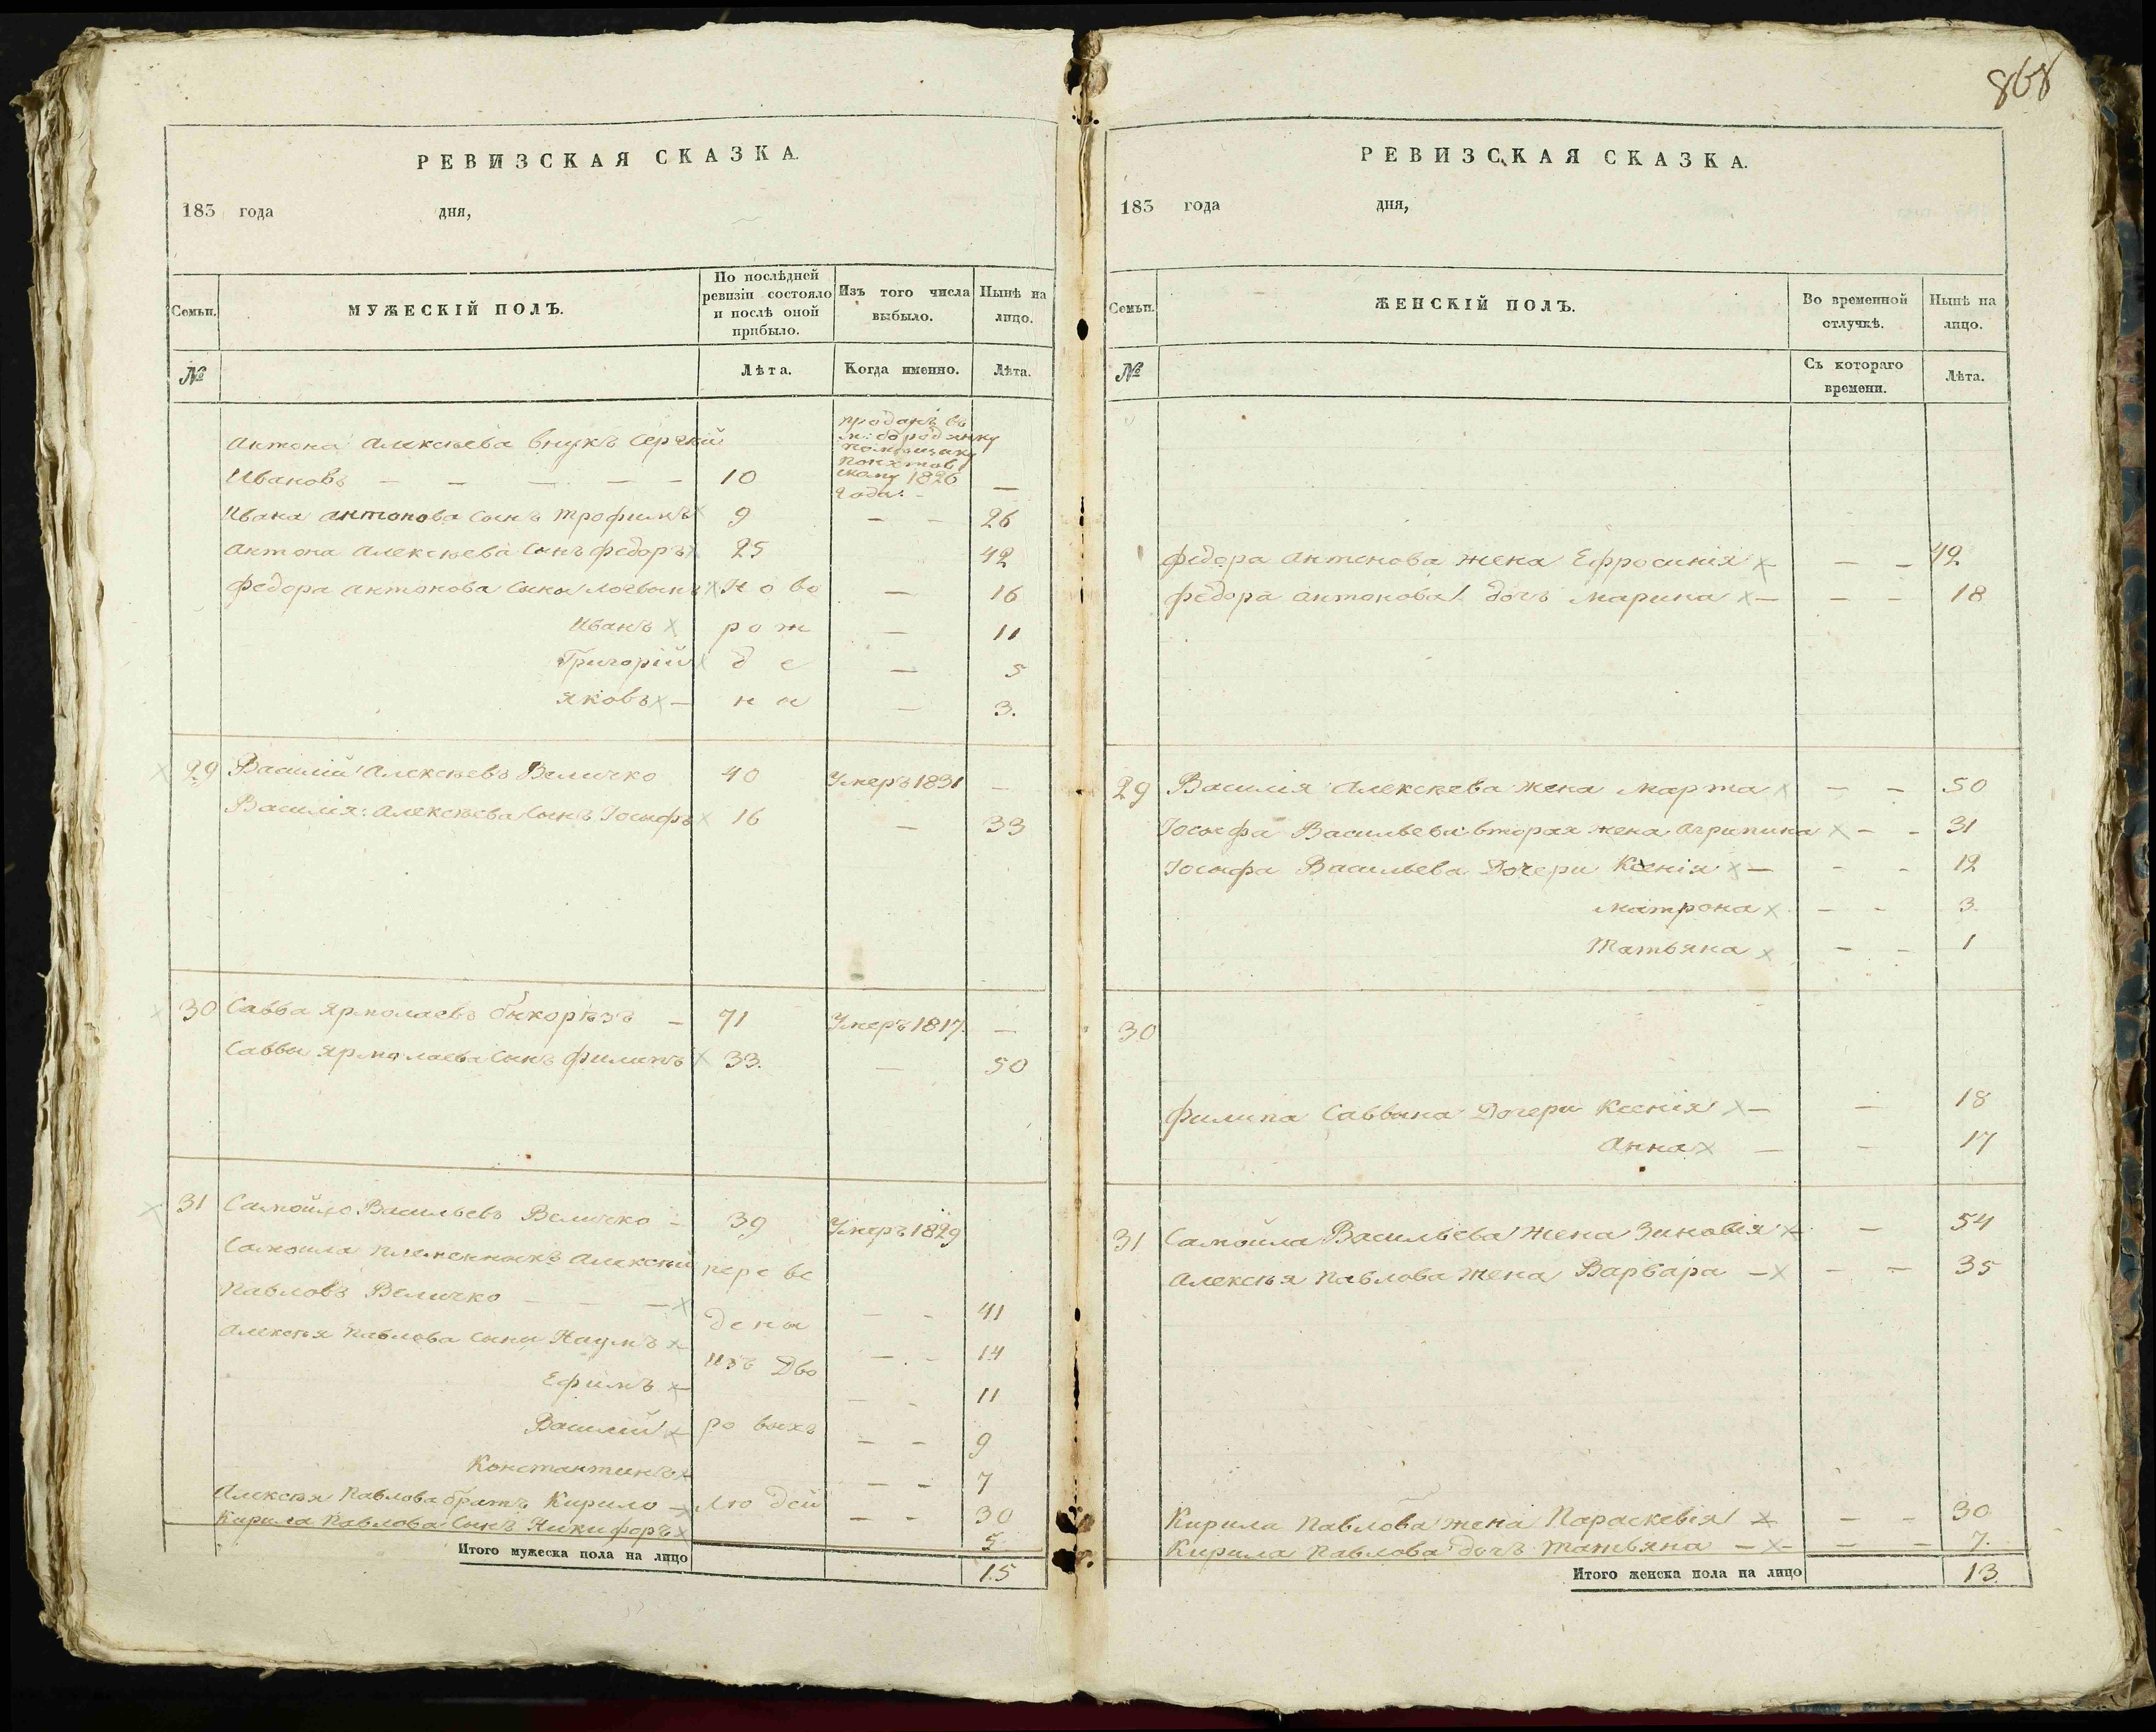 868
РЕВИЗСКАЯ СКАЗКА.
183 года дня,
Семьи. МУЖЕСКІЙ ПОЛЪ. По послѣдней ревизіи состояло и послѣ оной прибыло. Изъ того числа выбыло. Нынѣ на лицо.
№ Лѣта. Когда именно. Лѣта.
Антона Алексѣева внукъ Сергѣй
Ивановъ — — — — — 10 проданъ въ м: бородянку помѣщику 1826 года: —
Ивана Антонова сынъ Трофимъ х 9 — — 26
Антона Алексѣева сынъ Федоръ х 25 42
Федора Антонова сыны Логвинъ х Ново — 16
Иванъ х рож — 11
Григорій х де — 5
Яковъ х — на — 3.
х 29 Василій Алексѣевъ Величко 40 Умеръ 1831 —
Василія Алексѣева сынъ Іосифъ х 16 — 33
х 30 Савва Ярмолаевъ — 71 Умеръ 1817. —
Саввы Ярмолаева сынъ Филипъ х 33. — 50
х 31 Самойло Васильевъ Величко — 39 Умеръ 1829
Самойла племенникъ Алексѣй переве
Павловъ Величко — — — х дены — — 41
Алексѣя Павлова сыны Наумъ х изъ Дво — — 14
Ефимъ х — — 11
Василій х ровыхъ — — 9
Константинъ х — — 7
Алексѣя Павлова братъ Кирило — х людей — — 30
Кирила Павлова сынъ Никифоръ х 5.
Итого мужеска пола на лицо 15
РЕВИЗСКАЯ СКАЗКА.
183 года дня,
Семьи. ЖЕНСКІЙ ПОЛЪ. Во временной отлучкѣ. Нынѣ на лицо.
№ Съ котораго времени. Лѣта.
Федора Антонова жена Ефросинія х — — 42
Федора Антонова дочь Марина х — — — 18
29 Василія Алексѣева жена Марта х — — 50
Іосифа Васильева вторая жена Агрипина х — — 31
Іосифа Васильева Дочери Ксенія х — — — 12
Матрона х — — 3.
Татьяна х — — 1
30
Филипа Саввина Дочери Ксенія х — — 18
Анна х — — 17
31 Самойла Васильева жена Зиновія х — 54
Алексѣя Павлова жена Варвара — х — — 35
Кирила Павлова жена Параскевія х — — 30
Кирила Павлова дочь Татьяна — х — — — 7.
Итого женска пола на лицо 13.